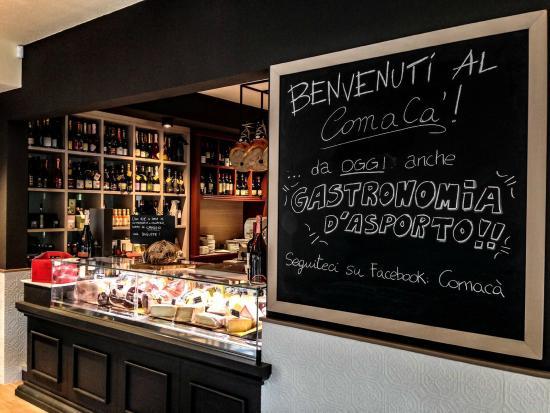 BENVENUTI AL
ComaCa'!
... da OGGI anche
GASTRONOMIA
D'ASPORTO!!
Seguiteci su Facebook: Comacà